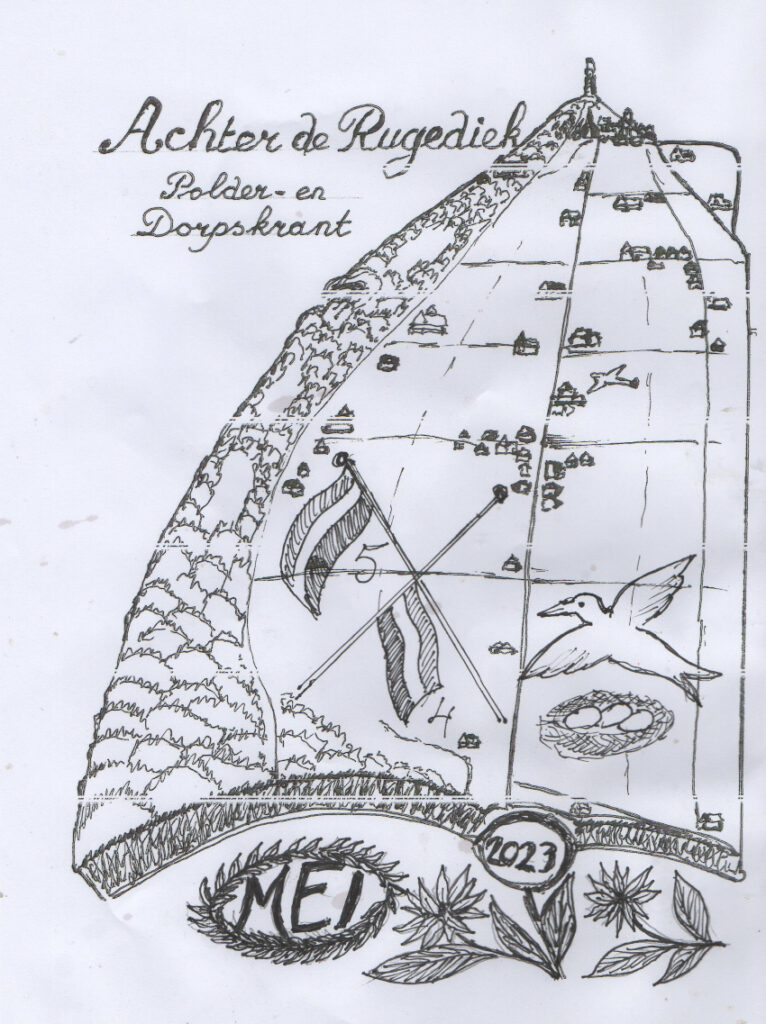 Achter de Rugediek
Polder- en
Dorpskrant
5
4
2023
MEI